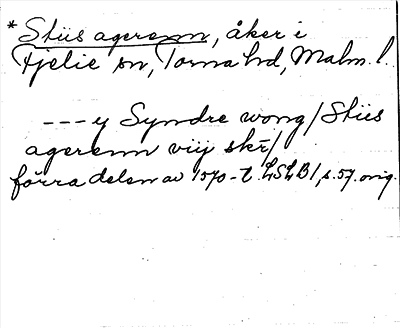 *Stiis agerenn, åker i
Fjelie sn, Torna hd, Malm. l.
--- y Syndre wong/Stiis
agerenn viij skr̄/
förra delen av 1570-t. LSLB1, s. 57. orig.